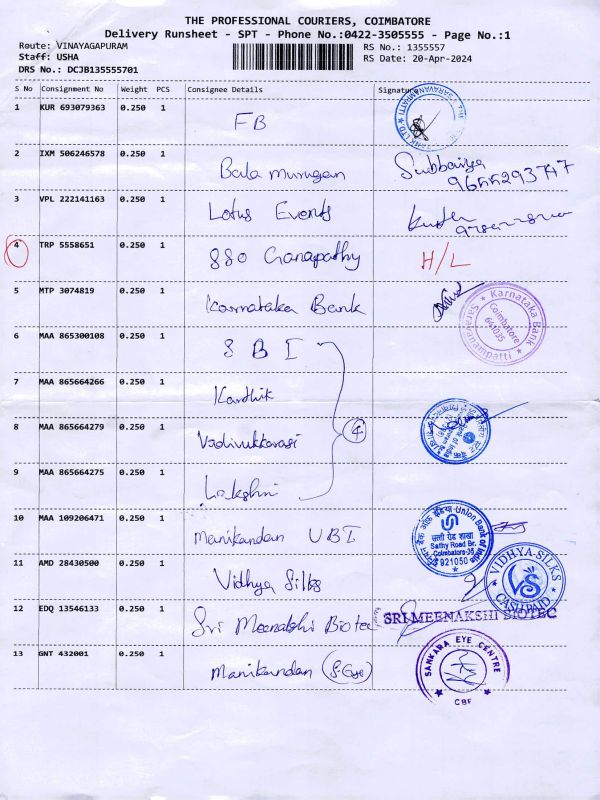 THE PROFESSIONAL COURIERS, COIMBATORE
Delivery Runsheet - SPT - Phone No.:0422-3505555 - Page No.:1
Route: VINAYAGAPURAM RS No.: 1355557
Staff: USHA RS Date: 20-Apr-2024
DRS No.: DCJB135555701
S No Consignment No Weight PCS Consignee Details Signature
1 KUR 693079363 0.250 1 FB
2 IXM 506246578 0.250 1 Bala murugan Subbaiya
3 VPL 222141163 0.250 1 Lotus Events
4 TRP 5558651 0.250 1 SSO Ganapathy H/L
5 MTP 3074819 0.250 1 Karnataka Bank
Karnataka Bank
Coimbatore
641035
Saravanampatti
6 MAA 865300108 0.250 1 S B I
7 MAA 865664266 0.250 1 Karthik
8 MAA 865664279 0.250 1 Vadivukkarasi 4
9 MAA 865664275 0.250 1 Lakshmi
10 MAA 109206471 0.250 1 Manikandan UBI
Union Bank of India
Sathy Road Br.
Coimbatore-35
921050
11 AMD 28430500 0.250 1 Vidhya Silks
VIDHYA SILKS
VS
CASH PAID
12 EDQ 13546133 0.250 1 Sri Meenakshi Biotec
SRI MEENAKSHI BIOTEC
13 GNT 432001 0.250 1 Manikandan (S-Eye)
SANKARA EYE CENTRE
CBF